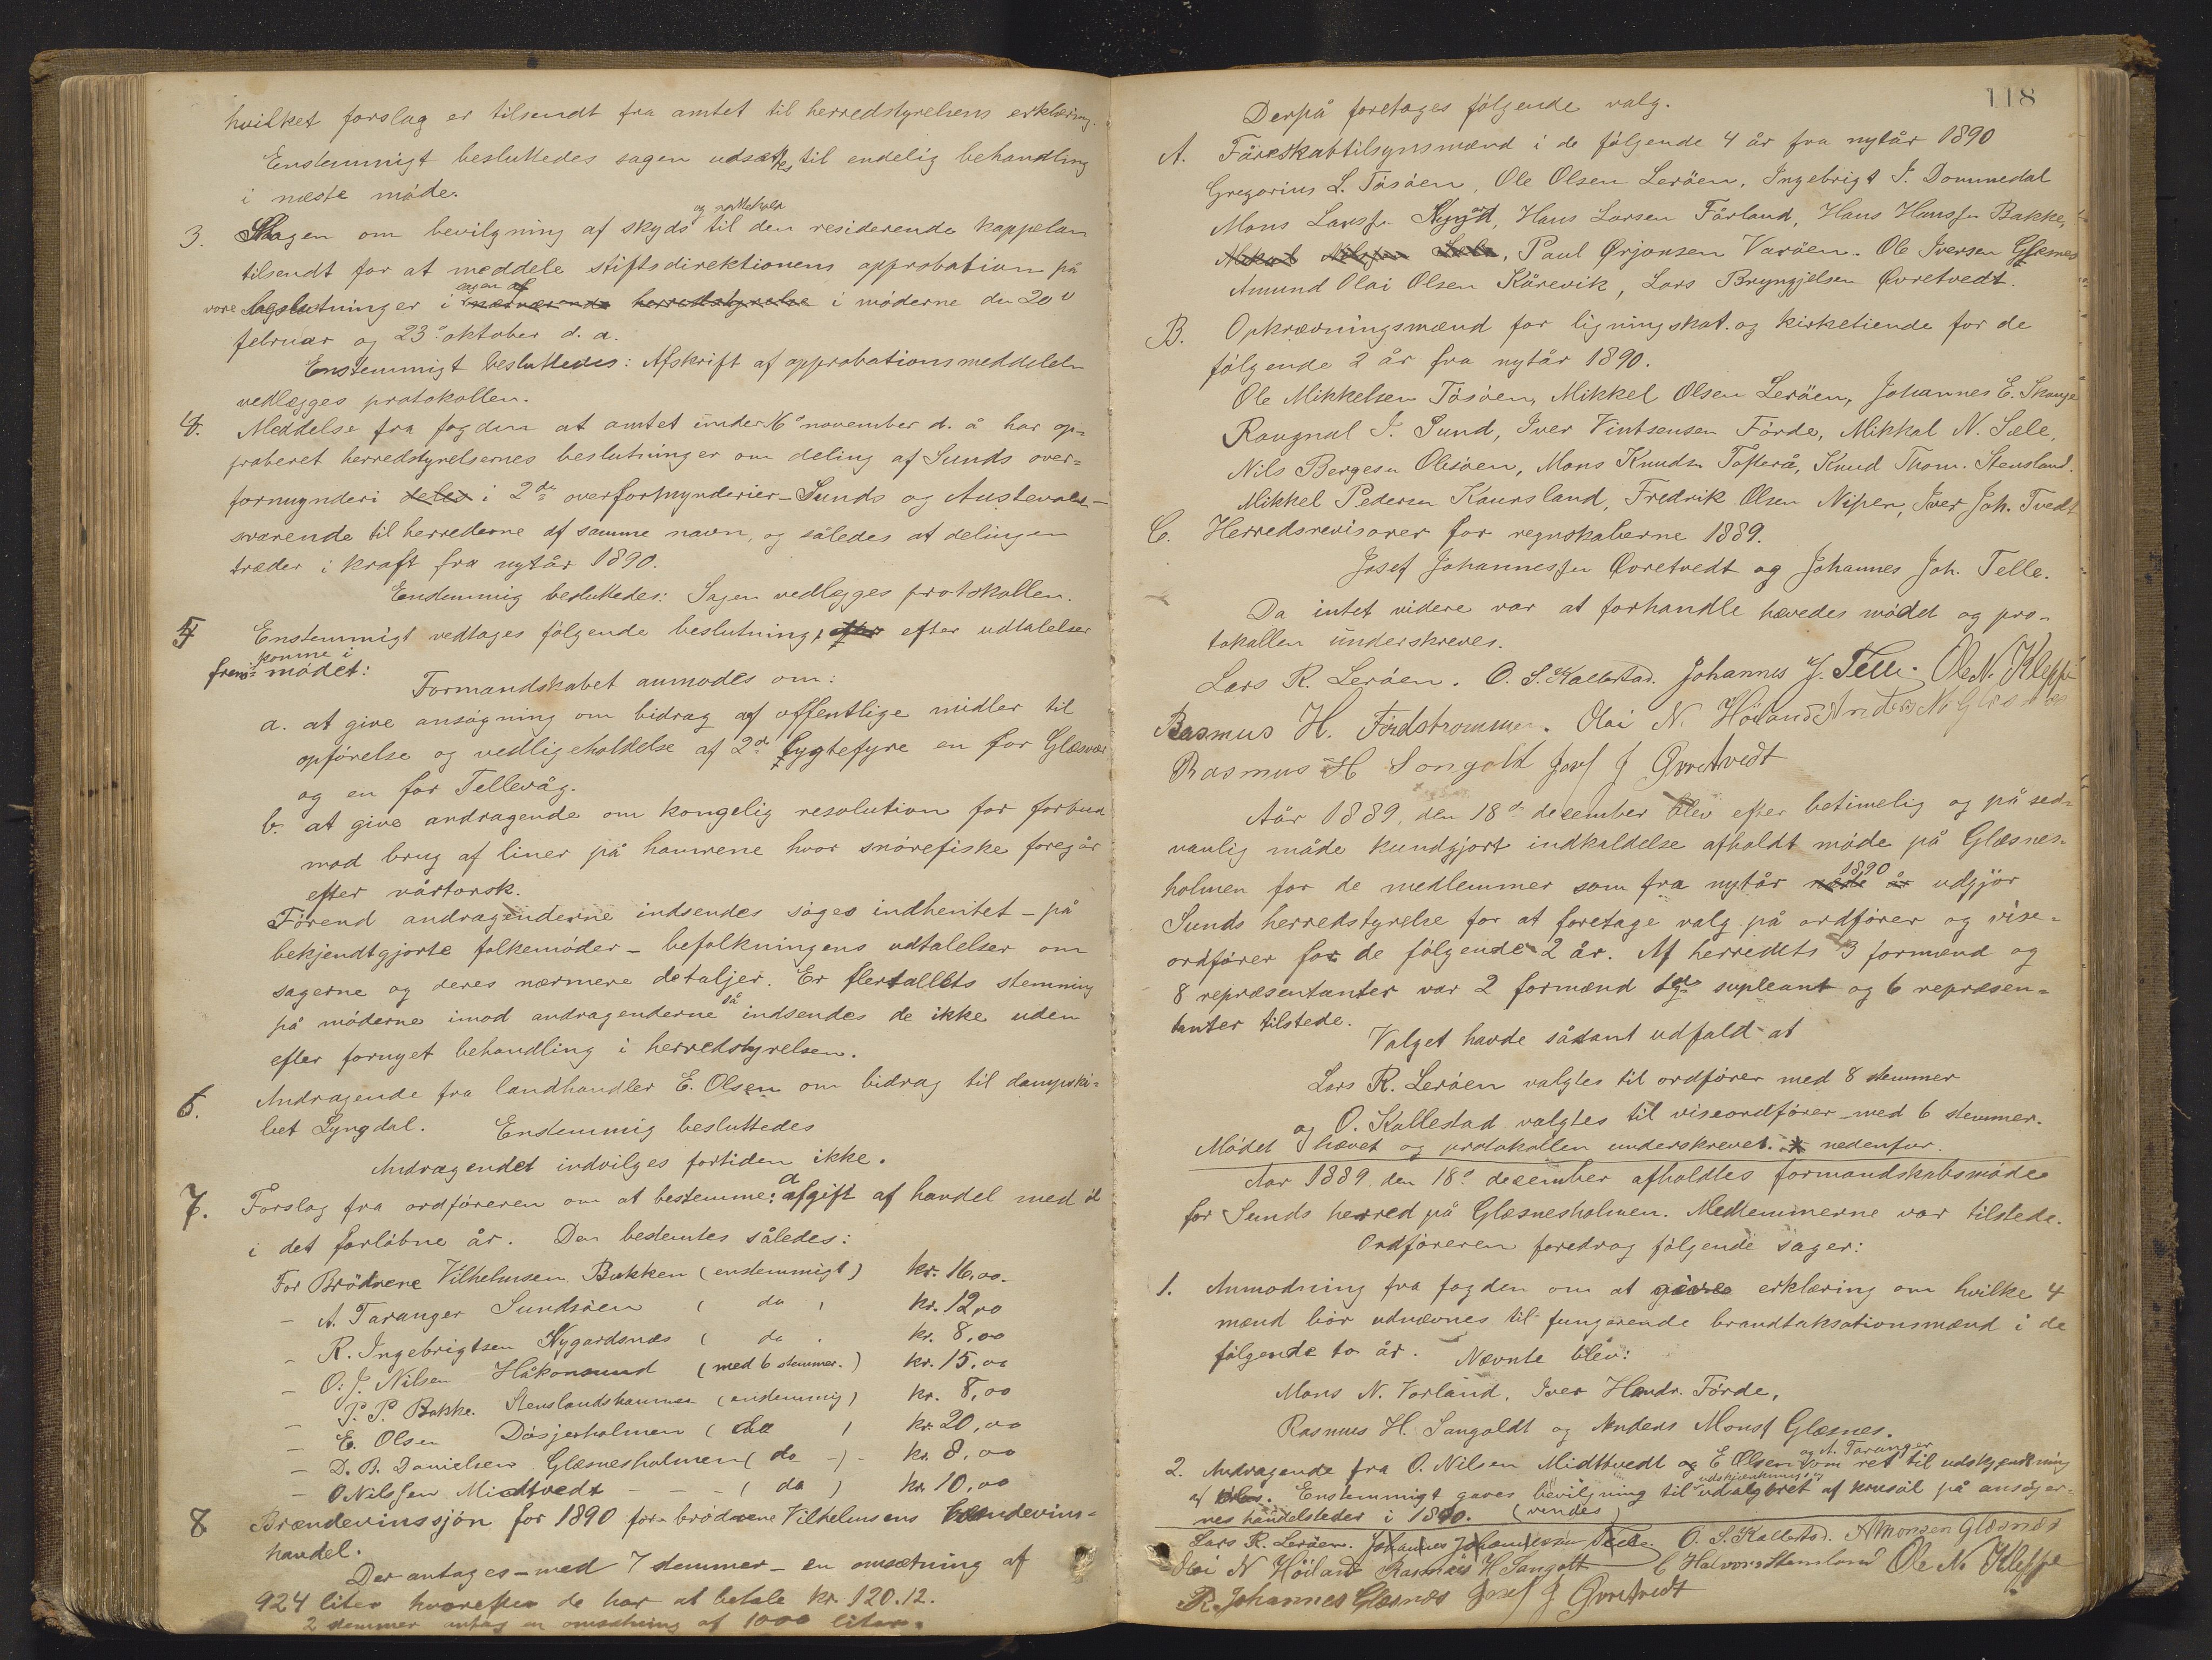 hvilket forslag er tilsendt fra amtet til herredstyrelsens erklæring.
Enstemmigt besluttedes sagen udsættes til endelig behandling
i næste møde.
3. Sagen om bevilgning af skyds og nattekvar til den residerende kappelan
tilsendt for at meddele stiftsdirektionens approbation på
vore beslutninger i sagen af nærværende herredstyrelse i møderne den 20d
februar og 23d oktober d. a.
Enstemmigt besluttedes: Afskrift af approbationsmeddelelsen
vedlægges protokollen.
4. Meddelse fra fogden at amtet under 16d november d. å har op-
proberet herredstyrelsernes beslutninger om deling af Sunds over-
formynderi deles i 2de overformynderier - Sunds og Austevolds -
svarende til herrederne af samme navn, og således at delingen
træder i kraft fra nytår 1890.
Enstemmig besluttedes: Sagen vedlægges protokollen.
5 Enstemmigt vedtages følgende beslutning, efter efter udtalelser
fremkomne i mødet:
Formandskabet anmodes om:
a. at give ansøgning om bidrag af offentlige midler til
opførelse og vedligeholdelse af 2de lygtefyre en for Glæsvær
og en for Tellevåg.
b. at give andragende om kongelig resolution for forbud
mod brug af liner på havnene hvor snørefiske foregår
efter vårtorsk.
Førend andragenderne indsendes søges indhentet - på
bekjendtgjorte folkemøder - befolkningens udtalelser om
sagerne og deres nærmere detaljer. Er flertallets stemning
på møderne imod andragenderne så indsendes de ikke uden
efter fornyet behandling i herredstyrelsen.
6. Andragende fra landhandler E. Olsen om bidrag til dampski-
bet Lyngdal. Enstemmig besluttedes
Andragendet indvilges fortiden ikke.
7. Forslag fra ordføreren om at bestemme: afgift af handel med øl
i det forløbne år. Den bestemtes således:
For Brødrene Vilhelmsen Bakken (enstemmigt) kr. 16,00.
- A. Taranger Sundsøen ( do ) kr. 12,00
- R. Ingebrigtsen Nygardsnæs ( do . kr. 8,00
- O. J. Nilsen Håkonsund (med 6 stemmer.) kr. 15,00
- P. P. Bakke. Stenslandshavnen (enstemmig) kr. 8,00
- E. Olsen Døsjerholmen ( do ) kr. 20,00
- D. B. Danielsen Glæsnesholmen ( do -) - kr. 8,00
- O Nilssen Midttvedt - - - ( do ) kr. 10,00
8 Brændevinssjøn for 1890 for brødrene Vilhelmsens brændevins-
handel.
Der antages - med 7 stemmer - en omsætning af
924 liter hvorefter de har at betale kr. 120.12.
2 stemmer antog en omsætning af 1000 liter.
118
Derpå foretages følgende valg.
A. Fåreskabtilsynsmænd i de følgende 4 år fra nytår 1890
Gregorius L. Tøsøen, Ole Olsen Lerøen, Ingebrigt I. Dommedal
Mons Larssen Nygård, Hans Larsen Førland, Hans Hanssen Bakke,
Mikal Nilssen Sele, Paul Ørjansen Varøen. Ole Iversen Glæsnes
Amund Olai Olsen Kårevik, Lars Bryngjelsen Øvretvedt.
B. Opkrævningsmænd for ligningskat. og kirketiende for de
følgende 2 år fra nytår 1890.
Ole Mikkelsen Tøsøen, Mikkel Olsen Lerøen, Johannes E. Skauge
Raugnal J. Sund, Iver Vintsensen Førde, Mikkal N. Sæle,
Nils Bergesen Olesøen, Mons Knudsen Tofterå, Knud Thom. Stensland.
Mikkel Pedersen Kaursland, Fredrik Olsen Nipen, Iver Joh. Tvedt
C. Herredsrevisorer for regnskaberne 1889.
Josef Johannessen Øvretvedt og Johannes Joh. Telle.
Da intet videre var at forhandle hævedes mødet og pro-
tokollen underskreves.
Lars R. Lerøen. O. S. Kallestad. Johannes J. Telle. Ole N. Kleppe
Rasmus H. Førdstrømmen. Olai N. Høiland Anders M Glæsnes
Rasmus H Sangolt Josef J Øvretvedt
Aår 1889, den 18d desember blev efter betimelig og på sed-
vanlig måde kundgjort indkaldelse afholdt møde på Glæsnes-
holmen for de medlemmer som fra nytår næste år 1890 udgjør
Sunds herredstyrelse for at foretage valg på ordfører og vise-
ordfører for de følgende 2 år. Af herredets 3 formænd og
8 repræsentanter var 2 formænd og supleant og 6 repræsen-
tanter tilstede.
Valget havde sådant udfald at
Lars R. Lerøen valgtes til ordfører med 8 stemmer
og O. Kallestad valgtes til viseordfører med 6 stemmer.
Mødet hævet og protokollen underskrevet. * nedenfor.
Aar 1889 den 18d desember afholdtes formandskabsmøde
for Sunds herred på Glæsnesholmen. Medlemmerne var tilstede.
Ordføreren foredrog følgende sager:
1. Anmodning fra fogden om at give erklæring om hvilke 4
mænd bør udnævnes til fungerende brandtaksationsmænd i de
følgende to år. Nævnte blev:
Mons N. Vorland, Iver Hendr. Førde,
Rasmus H. Sangoldt og Anders Monss Glæsnes.
2. Andragende fra O. Nilsen Midttvedt og E Olsen og A. Taranger om ret til udskjænkning
af øl. Enstemmigt gaves bevilgning til udskjænkning og udsalgsret af konsøl på ansøger-
nes handelsteder i 1890. (vendes)
Lars R. Lerøen. Johannes Johannessen Telle. O. S. Kallestad. A Monsen Glæsnes
Olai N Høiland Rasmus H Sangolt C Halvors Hamland Ole N. Kleppe
R. Johannes Glæsnes Josef J Øvretvedt